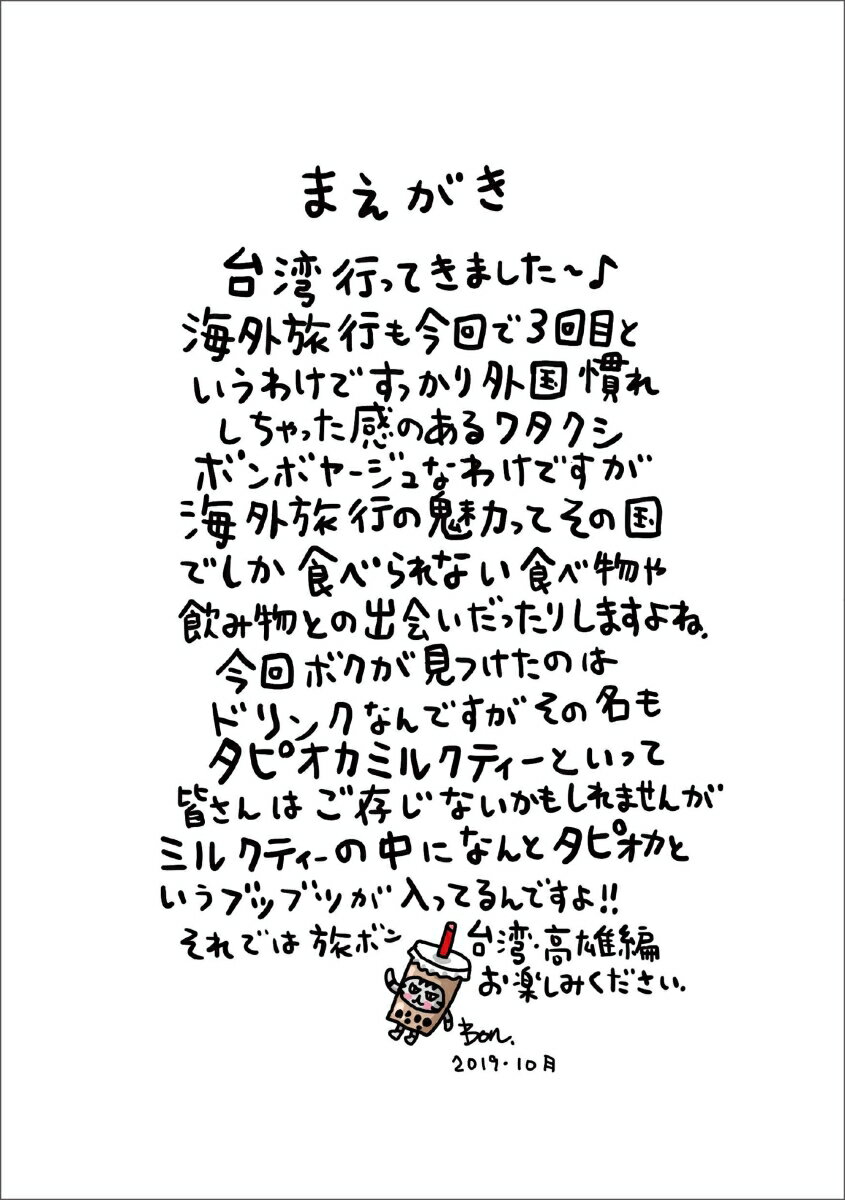 まえがき
台湾行ってきました～♪
海外旅行も今回で3回目と
いうわけですっかり外国慣れ
しちゃった感のあるワタクシ
ボンボヤージュなわけですが
海外旅行の魅力ってその国
でしか食べられない食べ物や
飲み物との出会いだったりしますよね。
今回ボクが見つけたのは
ドリンクなんですがその名も
タピオカミルクティーといって
皆さんはご存じないかもしれませんが
ミルクティーの中になんとタピオカと
いうブツブツが入ってるんですよ!!
それでは旅ボン 台湾・高雄編
お楽しみください。
Bon.
2019・10月